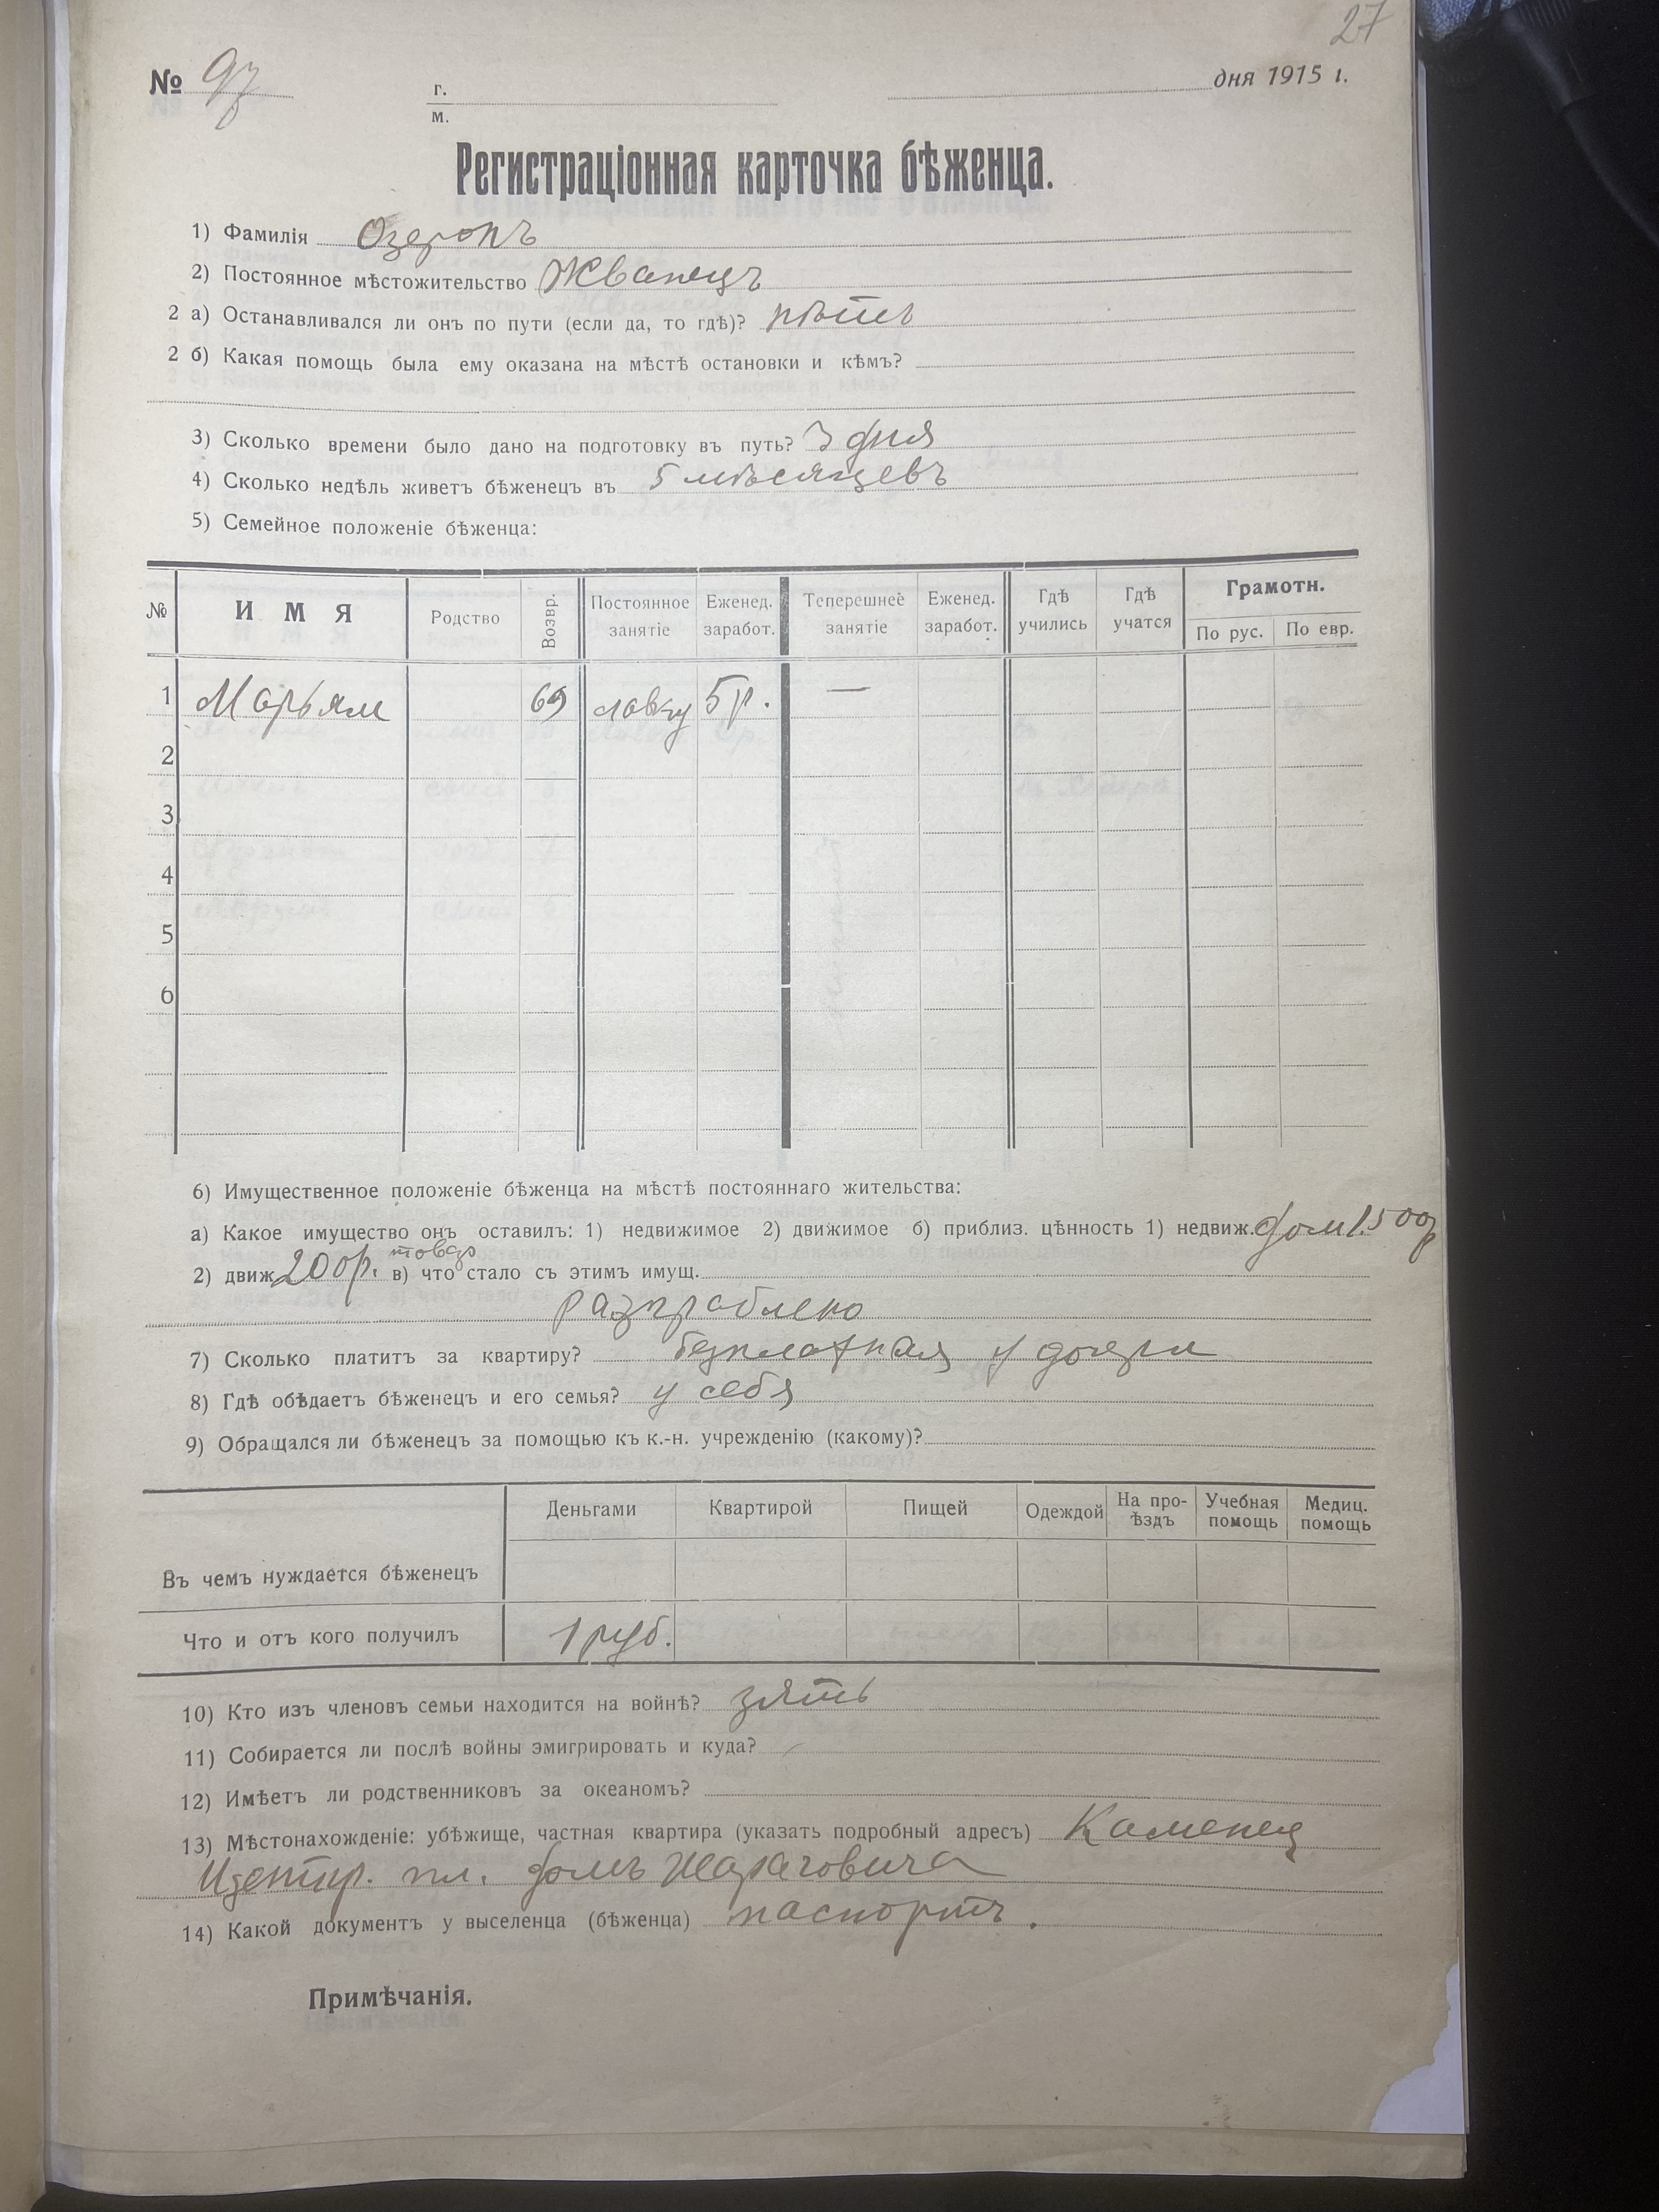 27
№ 97 г. дня 1915 г.
м.
Регистраціонная карточка бѣженца.
1) Фамилія Озеропъ
2) Постоянное мѣстожительство Жванецъ
2 а) Останавливался ли онъ по пути (если да, то гдѣ)? нѣтъ
2 б) Какая помощь была ему оказана на мѣстѣ остановки и кѣмъ?
3) Сколько времени было дано на подготовку въ путь? 3 дня
4) Сколько недѣль живетъ бѣженецъ въ 5 мѣсяцевъ
5) Семейное положеніе бѣженца:
№ ИМЯ Родство Возвр. Постоянное занятіе Еженед. заработ. Теперешнее занятіе Еженед. заработ. Гдѣ учились Гдѣ учатся Грамотн.
По рус. По евр.
1 Марьям 69 лавку 5 р. —
2
3
4
5
6
6) Имущественное положеніе бѣженца на мѣстѣ постояннаго жительства:
а) Какое имущество онъ оставилъ: 1) недвижимое 2) движимое б) приблиз. цѣнность 1) недвиж. дом 1.500 р
2) движ. 200 р. товар в) что стало съ этимъ имущ.
разграблено
7) Сколько платитъ за квартиру? безплатная у дочери
8) Гдѣ обѣдаетъ бѣженецъ и его семья? у себя
9) Обращался ли бѣженецъ за помощью къ к.-н. учрежденію (какому)?
Деньгами Квартирой Пищей Одеждой На про-ѣздъ Учебная помощь Медиц. помощь
Въ чемъ нуждается бѣженецъ
Что и отъ кого получилъ 1 руб.
10) Кто изъ членовъ семьи находится на войнѣ? зять
11) Собирается ли послѣ войны эмигрировать и куда?
12) Имѣетъ ли родственниковъ за океаномъ?
13) Мѣстонахожденіе: убѣжище, частная квартира (указать подробный адресъ) Каменец
пл. домъ
14) Какой документъ у выселенца (бѣженца) паспортъ.
Примѣчанія.